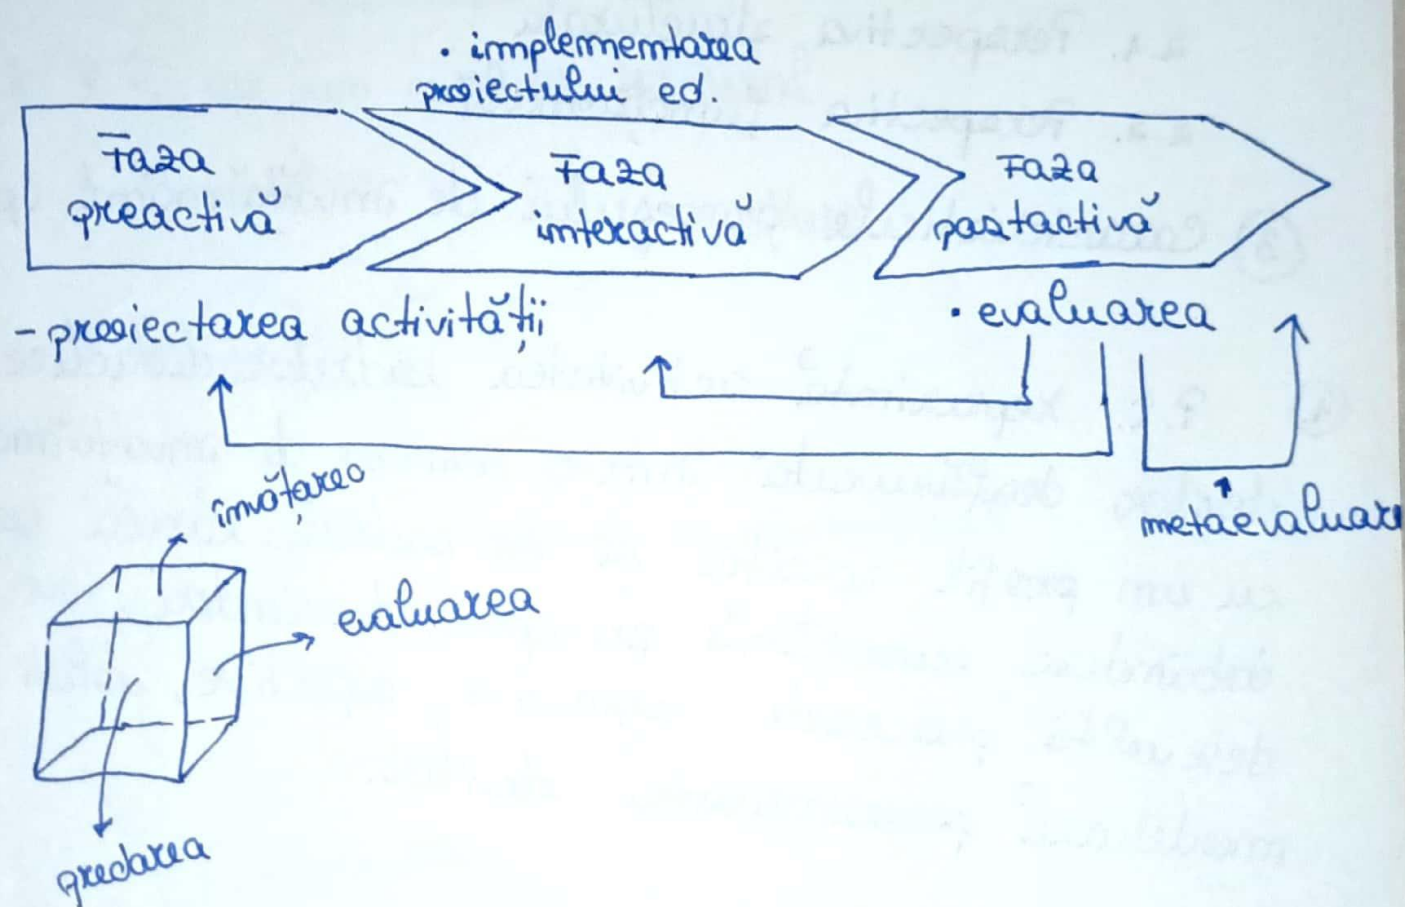 • implementarea
proiectului ed.
Faza
preactivă
Faza
interactivă
Faza
postactivă
- proiectarea activității
• evaluarea
metaevaluare
învățarea
evaluarea
predarea